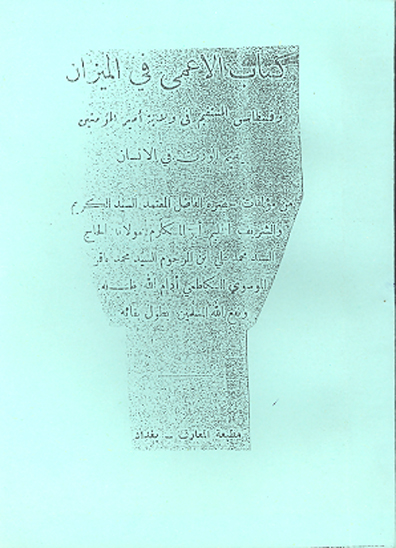 كتاب الاعمى في الميزان
في ولاية امير المؤمنين
في الانسان
من مؤلفات حضرة الفاضل المعتمد السيد الكريم
والشريف مولانا الحاج
السيد محمد علي ابن المرحوم السيد محمد باقر
الموسوي الكاظمي أدام الله ظله
ونفع الله المسلمين بطول بقائه
مطبعة المعارف - بغداد